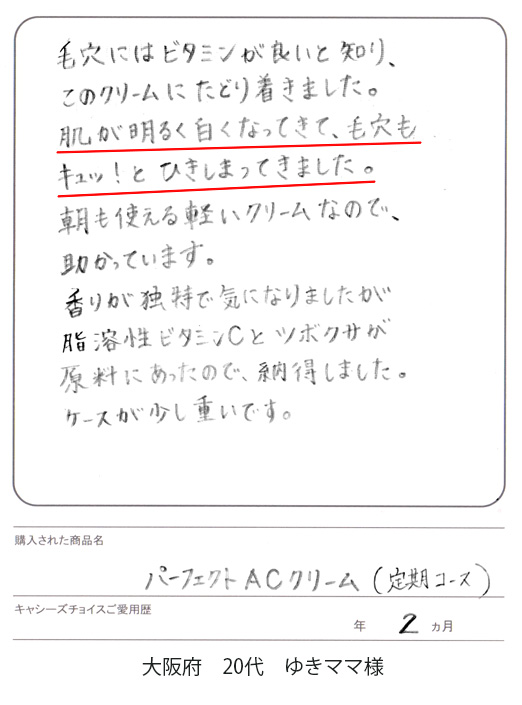 毛穴にはビタミンが良いと知り、
このクリームにたどり着きました。
肌が明るく白くなってきて、毛穴も
キュッ！とひきしまってきました。
朝も使える軽いクリームなので、
助かっています。
香りが独特で気になりましたが
脂溶性ビタミンCとツボクサが
原料にあったので、納得しました。
ケースが少し重いです。
購入された商品名
パーフェクトACクリーム(定期コース)
キャシーズチョイスご愛用歴
年 2 ヵ月
大阪府 20代 ゆきママ様